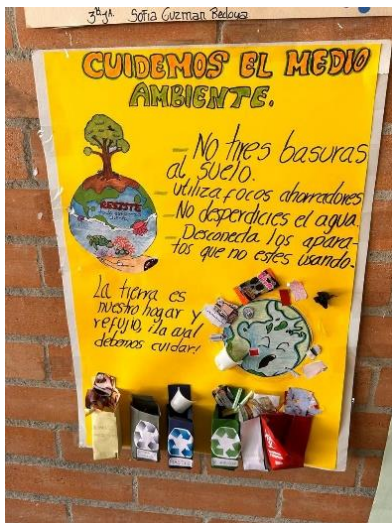 3º JA. Sofia Guzman Bedoya
CUIDEMOS EL MEDIO
AMBIENTE.
- No tires basuras
al suelo.
- utiliza focos ahorradores
- No desperdicies el agua
- Desconecta los apara-
tos que no estes usando.
RESISTE
La tierra es
nuestro hogar y
refujio, ¡la cual
debemos cuidar!